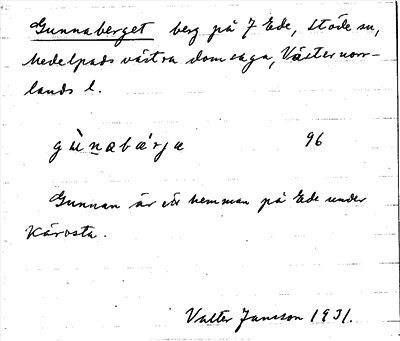 Gunnaberget berg på 7 Ede, Stöde sn,
Medelpads västra domsaga, Västernorr-
lands l.
gùnabærjæ 96
Gunnan är ett hemman på Ede under
Kärvsta.
Valter Jansson 1931.